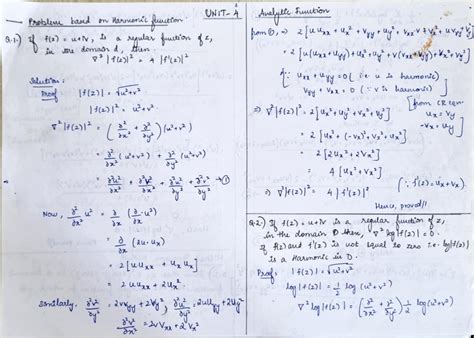 UNIT-4
Problem based on Harmonic function.
Q.1:) If f(z) = u+iv, is a regular function of z,
in the domain d, then -
∇²|f(z)|² = 4|f'(z)|²
Solution:
Proof |f(z)| = √u²+v²
|f(z)|² = u²+v²
∇²|f(z)|² = (∂²/∂x² + ∂²/∂y²)(u²+v²)
= ∂²/∂x²(u²+v²) + ∂²/∂y²(u²+v²)
= ∂²u²/∂x² + ∂²v²/∂x² + ∂²u²/∂y² + ∂²v²/∂y² → ①
Now, ∂²/∂x² u² = ∂/∂x (∂/∂x · u²)
= ∂/∂x (2u·ux)
= 2[u uxx + ux ux]
= 2u uxx + 2ux²
Similarly. ∂²v²/∂y² = 2v vyy + 2Vy², ∂²u²/∂y² = 2u uyy + 2uy²
∂²v²/∂x² = 2v Vxx + 2Vx²
Analytic Function
from ①, ⇒
{∵ uxx + uyy = 0 (i.e. u is harmonic)
Vyy + Vxx = 0 (∵ v is harmonic)}
⇒ ∇²|f(z)|² = 2[ux² + uy² + vx² + vy²]
[from CR eqn:
ux = Vy
-Vx = Uy]
= 2[ux² + (-vx)² + vx² + ux²]
= 2[2ux² + 2vx²]
= 4[ux² + vx²]
⇒ ∇²|f(z)|² = 4|f'(z)|²
Hence, proved!!
Q.2:) If f(z) = u+iv is a regular function of z,
in the domain D then, ∇² log|f(z)| = 0.
if f(z) and f'(z) is not equal to zero i.e. log|f(z)|
is a Harmonic in D.
Proof: |f(z)| = √u²+v²
log|f(z)| = 1/2 log(u²+v²)
∇² log|f(z)| = (∂²/∂x² + ∂²/∂y²) 1/2 log(u²+v²)